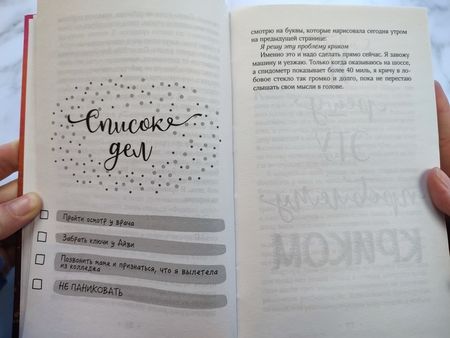 Список
дел
Пройти осмотр у врача
Забрать ключи у Айви
Позвонить маме и признаться, что я вылетела
из колледжа
НЕ ПАНИКОВАТЬ
смотрю на буквы, которые нарисовала сегодня утром
на предыдущей странице:
Я решу эту проблему криком
Именно это и надо сделать прямо сейчас. Я завожу
машину и уезжаю. Только когда оказываюсь на шоссе,
а спидометр показывает более 40 миль, я кричу в ло-
бовое стекло так громко и долго, пока не перестаю
слышать свои мысли в голове.
решу
ЭТУ
проблему
КРИКОМ